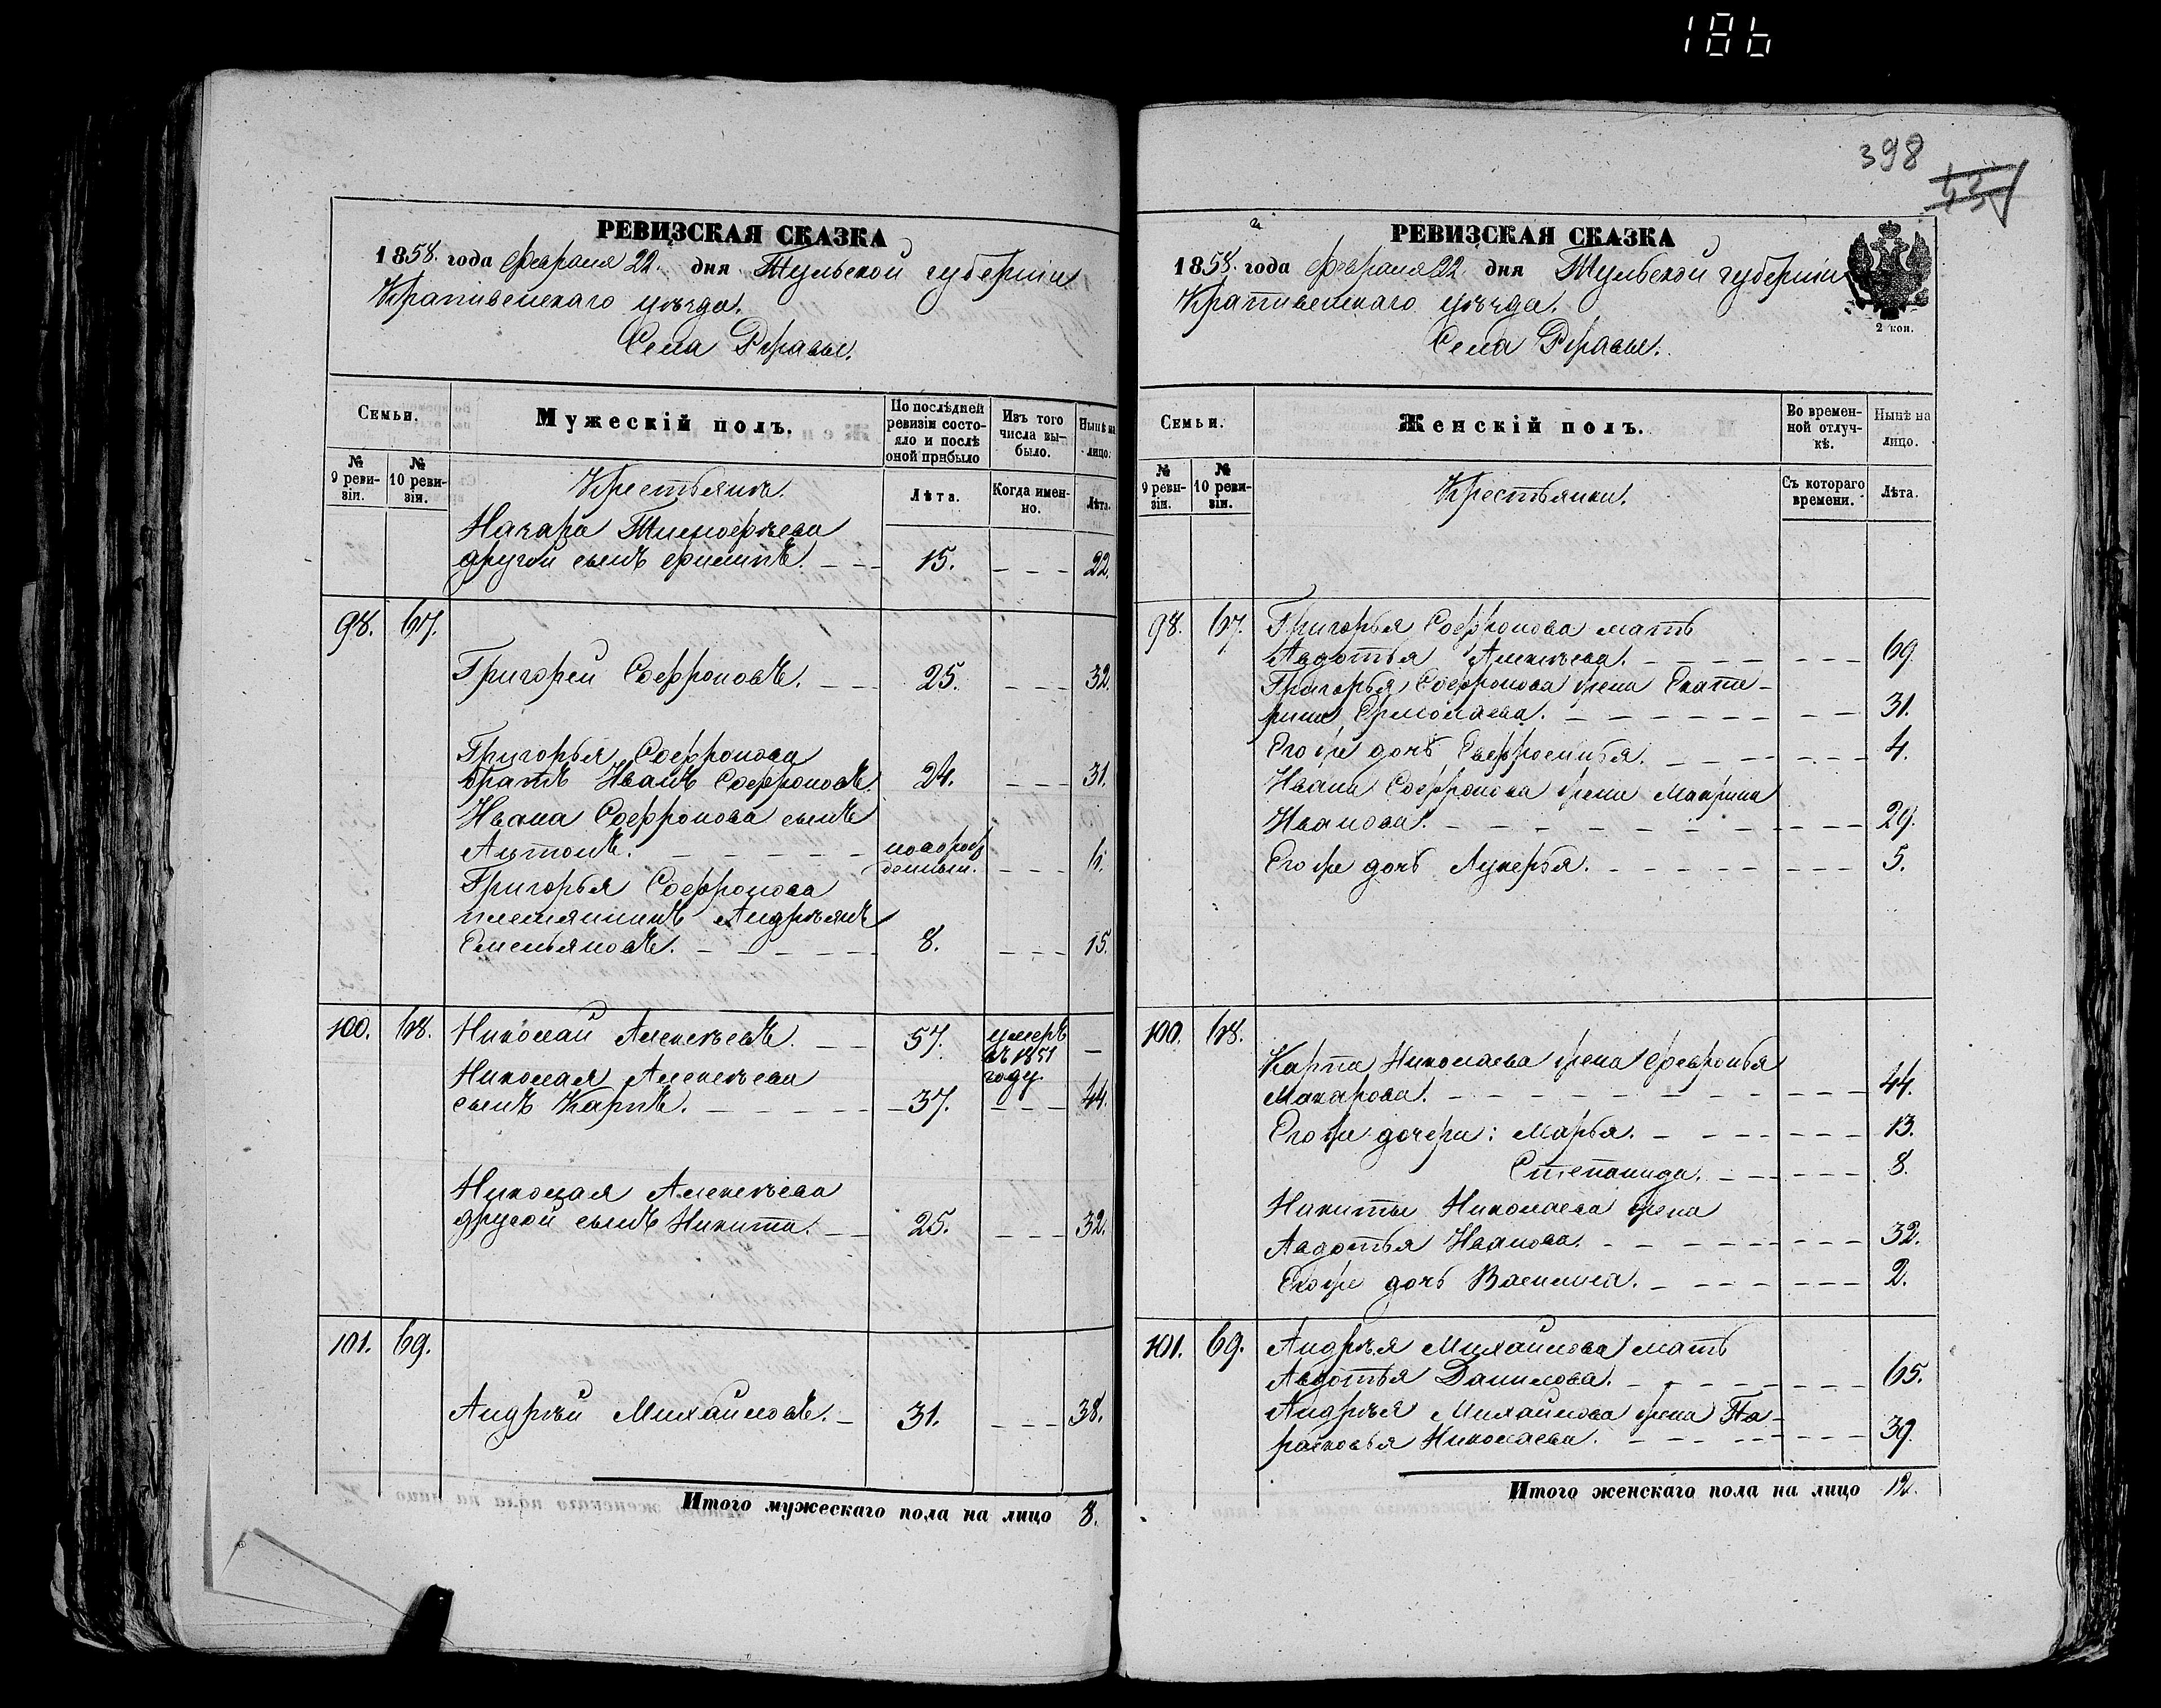 186
398
РЕВИЗСКАЯ СКАЗКА
1858. года Февраля 22. дня Тульской губерніи
Крапивенскаго уѣзда.
Села
Семьи.
Мужескій полъ.
По послѣдней ревизіи состояло и послѣ оной прибыло
Изъ того числа выбыло.
Нынѣ на лицо.
№ 9 ревизіи.
№ 10 ревизіи.
Крестьянъ.
Лѣта.
Когда именно.
Лѣта.
Назара Тимофѣева
другой сынъ Филипъ. 15. 22.
98. 67.
Григорей Софроновъ. 25. 32.
Григорья Софронова
братъ Иванъ Софроновъ. 24. 31.
Ивана Софронова сынъ
Антонъ. новорожденный. 6.
Григорья Софронова
племянникъ Андрѣянъ
Емельяновъ. 8. 15.
100. 68. Николай Алексѣевъ. 57. умеръ въ 1851 году. —
Николая Алексѣева
сынъ Карпъ. 37. 44.
Николая Алексѣева
другой сынъ Никита. 25. 32.
101. 69.
Андрѣй Михайловъ. 31. 38.
Итого мужескаго пола на лицо 8.
РЕВИЗСКАЯ СКАЗКА
1858. года Февраля 22. дня Тульской губерніи
Крапивенскаго уѣзда.
Села
2 коп.
Семьи.
Женскій полъ.
Во временной отлучкѣ.
Нынѣ на лицо.
№ 9 ревизіи.
№ 10 ревизіи.
Крестьянки.
Съ котораго времени.
Лѣта.
98. 67. Григорья Софронова мать
Авдотья Алексѣева. 69.
Григорья Софронова жена Екате-
рина Ермолаева. 31.
Его же дочь Евфросинья. 4.
Ивана Софронова жена Макрина
Иванова. 29.
Его же дочь Лукерья. 5.
100. 68.
Карпа Николаева жена Февронья
Макарова. 44.
Его же дочери: Марья. 13.
Степанида. 8.
Никиты Николаева жена
Авдотья Иванова. 32.
Его же дочь Василиса. 2.
101. 69. Андрѣя Михайлова мать
Авдотья Данилова. 65.
Андрѣя Михайлова жена Па-
расковья Николаева. 39.
Итого женскаго пола на лицо 12.